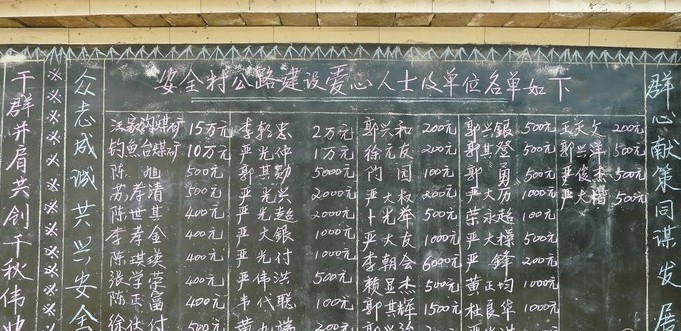 安全村公路建设爱心人士及单位名单如下
干群并肩共创千秋伟
众志成诚共兴安全
群心献策同谋发展
汪家沟煤矿 15万元
钓鱼台煤矿 10万元
陈旭 500元
苏孝清 500元
陈世其 400元
李孝金 400元
陈琪瑛 400元
张学荣 400元
陈正富 400元
徐仕付
李朝忠 2万元
严光仲 1万元
郭其勋 5000元
严光兴 2000元
严光超 2000元
严大银 1000元
严光付 1000元
严伟洪 500元
韦代聪 100元
郭兴和 200元
徐元友 200元
闵园 100元
严大权 200元
卜光举 500元
严大友 1000元
李朝会 6000元
赖显杰 500元
郭其辉 1500元
郭兴银 500元
郭其登 500元
郭勇 500元
严大历 1000元
荣永超 500元
严大操 500元
严锋 200元
黄正均 1000元
杜良华
王天文 200元
郭兴洋 500元
严俊杰 500元
严大楷 500元